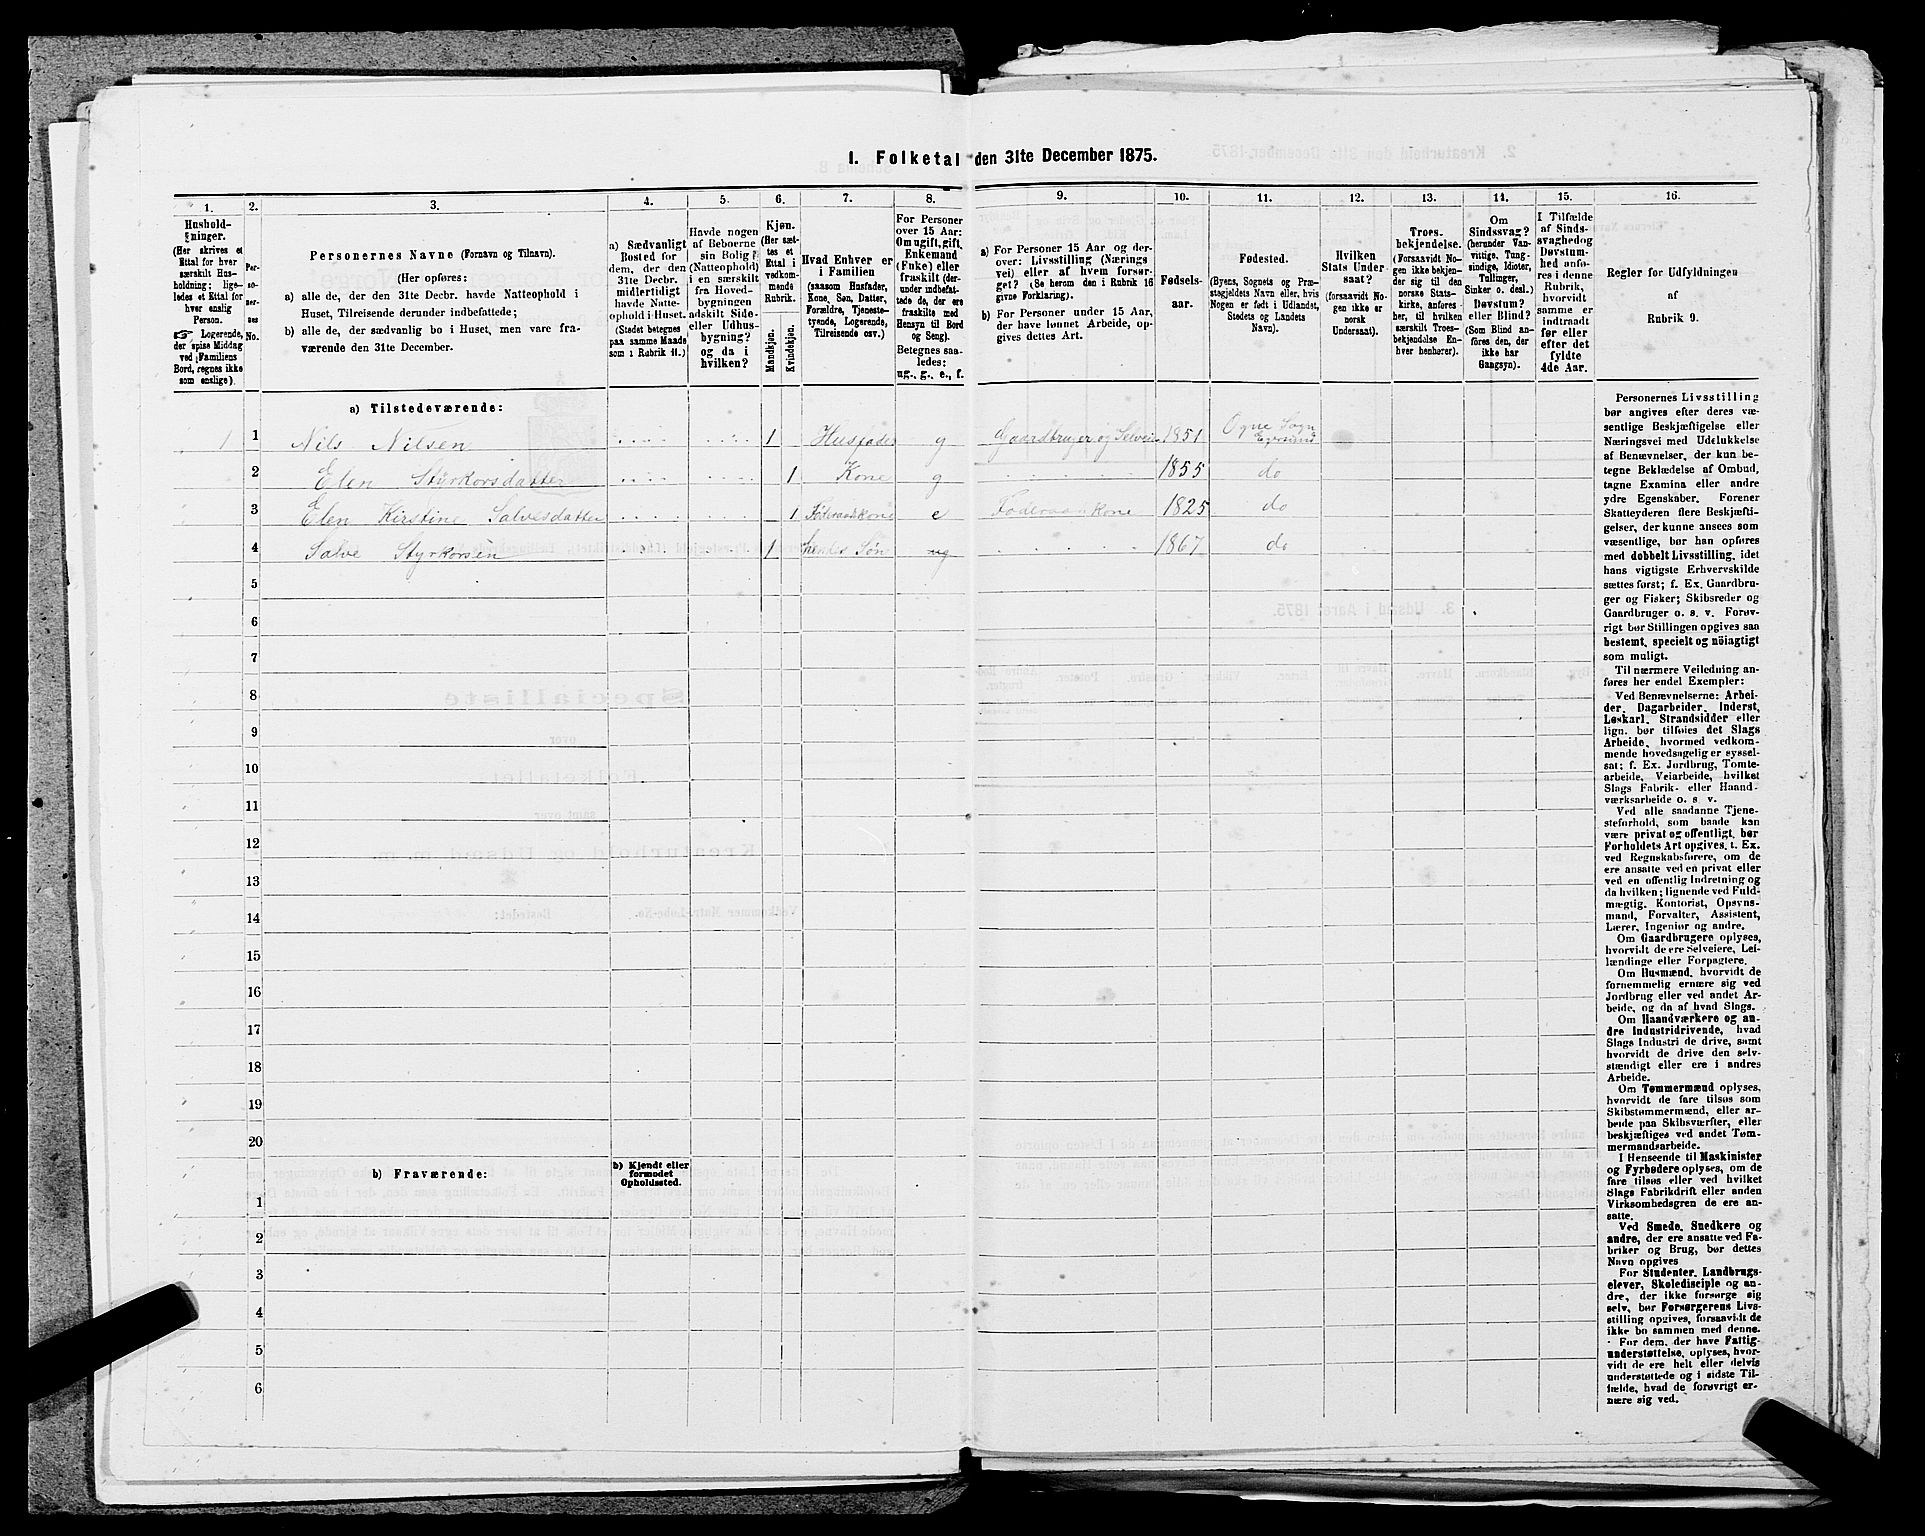 1. Folketal den 31te December 1875.
1. 2. 3. 4. 5. 6. 7. 8. 9. 10. 11. 12. 13. 14. 15. 16.
Hushold-
ninger.
(Her skrives et
Ettal for hver
særskilt Hus-
holdning; lige-
ledes et Ettal for
hver enslig
Person.
☞ Logerende,
der spise Middag
ved Familiens
Bord, regnes ikke
som enslige).
Per-
so-
ner-
nes
No.
Personernes Navne (Fornavn og Tilnavn).
(Her opføres:
a) alle de, der den 31te Decbr. havde Natteophold i
Huset, Tilreisende derunder indbefattede;
b) alle de, der sædvanlig bo i Huset, men vare fra-
værende den 31te December.
a) Sædvanligt
Bosted for
dem, der den
31te Decbr.
midlertidigt
havde Natte-
ophold i Huset.
(Stedet betegnes
paa samme Maade
som i Rubrik 11.)
Havde nogen
af Beboerne
sin Bolig
(Natteophold)
i en særskilt
fra Hoved-
bygningen
adskilt Side-
eller Udhus-
bygning?
og da i
hvilken?
Kjøn.
(Her sæt-
tes et
Ettal i
vedkom-
mende
Rubrik.
Mandkjøn.
Kvindekjøn.
Hvad Enhver er
i Familien
(saasom Husfader,
Kone, Søn, Datter,
Forældre, Tjeneste-
tyende, Logerende,
Tilreisende osv.)
For Personer
over 15 Aar:
Om ugift, gift,
Enkemand
(Enke) eller
fraskilt (der-
under indbefat-
tede de, der ere
fraskilte med
Hensyn til Bord
og Seng).
Betegnes saa-
ledes:
ug., g., e., f.
a) For Personer 15 Aar og der-
over: Livsstilling (Nærings
vei) eller af hvem forsør-
get? (Se herom den i Rubrik 16
givne Forklaring).
b) For Personer under 15 Aar,
der have lønnet Arbeide, op-
gives dettes Art.
Fødsels-
aar.
Fødested.
(Byens, Sognets og Præ-
stegjeldets Navn eller, hvis
Nogen er født i Udlandet,
Stedets og Landets
Navn).
Hvilken
Stats Under
saat?
(forsaavidt No-
gen ikke er
norsk
Undersaat).
Troes-
bekjendelse.
(Forsaavidt No-
gen ikke bekjen-
der sig til den
norske Stats-
kirke, anføres
her, til hvilken
særskilt Troes-
bekjendelse En-
hver henhører).
Om
Sindssvag?
(herunder Van-
vittige, Tung-
sindige, Idioter,
Tullinger,
Sinker o. desl.)
Døvstum?
eller Blind?
(Som Blind an-
føres den, der
ikke har
Gangsyn).
I Tilfælde
af Sinds-
svaghed og
Døvstum-
hed anfø-
res i denne
Rubrik,
hvorvidt
samme er
indtraadt
før eller
efter det
fyldte
4de Aar.
Regler for Udfyldningen
af
Rubrik 9.
a) Tilstedeværende:
1 1 Nils Nilsen 1 Husfader g Gaardbruger og Selveier 1851 Ogne Sogn
Egersund
2 Elen Styrkorsdatter 1 Kone g 1855 do
3 Elen Kirstine Salvesdatter 1 Føderaadskone e Føderaadskone 1825 do
4 Salve Styrkorsen 1 hendes Søn ug 1867 do
5
6
7
8
9
10
11
12
13
14
15
16
17
18
19
20
b) Fraværende:
b) Kjendt eller
formodet
Opholdssted.
1
2
3
4
5
6
Personernes Livsstilling
bør angives efter deres væ-
sentlige Beskjæftigelse eller
Næringsvei med Udelukkelse
af Benævnelser, der kun be-
tegne Beklædelse af Ombud,
tagne Examina eller andre
ydre Egenskaber. Forener
Skatteyderen flere Beskjæfti-
gelser, der kunne ansees som
væsentlige, bør han opføres
med dobbelt Livsstilling, idet
hans vigtigste Erhvervskilde
sættes først; f. Ex. Gaardbru-
ger og Fisker; Skibsreder og
Gaardbruger o. s. v. Forøv-
rigt bør Stillingen opgives saa
bestemt, specielt og nöiagtigt
som muligt.
Til nærmere Veiledning an-
føres her endel Exempler:
Ved Benævnelserne: Arbei-
der, Dagarbeider, Inderst,
Løskarl, Strandsidder eller
lign. bør tilføies det Slags
Arbeide, hvormed vedkom-
mende hovedsagelig er syssel-
sat; f. Ex. Jordbrug, Tomte-
arbeide, Veiarbeide, hvilket
Slags Fabrik- eller Haand-
værksarbeide o. s v.
Ved alle saadanne Tjene-
steforhold, som baade kan
være privat og offentligt, bør
Forholdets Art opgives, t. Ex.
ved Regnskabsførere, om de
ere ansatte ved en privat eller
ved en offentlig Indretning og
da hvilken; lignende ved Fuld-
mægtig, Kontorist, Opsyns-
mand, Forvalter, Assistent,
Lærer, Ingeniør og andre.
Om Gaardbrugere oplyses,
hvorvidt de ere Selveiere, Lei-
lændinge eller Forpagtere.
Om Husmænd, hvorvidt de
fornemmelig ernære sig ved
Jordbrug eller ved andet Ar-
beide, og da af hvad Slags.
Om Haandværkere og an-
dre Industridrivende, hvad
Slags Industri de drive, samt
hvorvidt de drive den selv-
stændigt eller ere i andres
Arbeide.
Om Tømmermænd oplyses,
hvorvidt de fare tilsøs som
Skibstømmermænd, eller ar-
beide paa Skibsværfter, eller
beskjæftiges ved andet Tøm-
mermandsarbeide.
I Henseende til Maskinister
og Fyrbødere oplyses, om de
fare tilsøs eller ved hvilket
Slags Fabrikdrift eller anden
Virksomhedsgren de ere an-
satte.
Ved Smede, Snedkere og
andre, der ere ansatte ved Fa-
briker og Brug, bør dettes
Navn opgives
For Studenter, Landbrugs-
elever, Skoledisciple og an-
dre, der ikke forsørge sig
selv, bør Forsørgerens Livs-
stilling opgives, forsaavidt de
ikke bo sammen med denne.
For dem, der have Fattig-
understøttelse, oplyses, hvor-
vidt de ere helt eller delvis
understøttede og i sidste Til-
fælde, hvad de forøvrigt er-
nære sig ved.